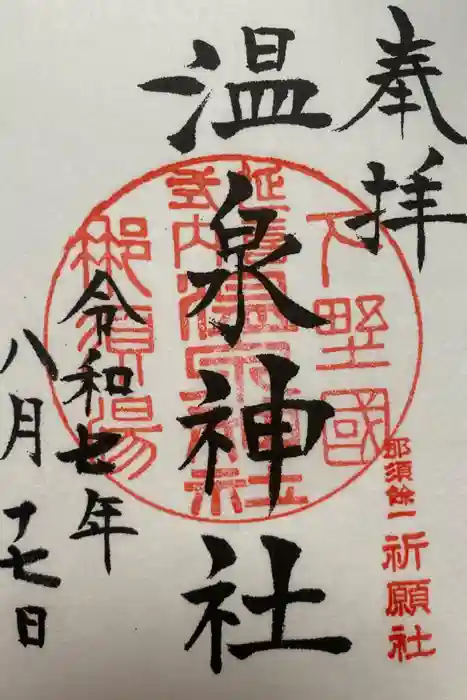 奉拝
下野國
延喜
式内
温泉神社
温泉神社
那須湯
令和七年
八月十七日
那須餘一
祈願社